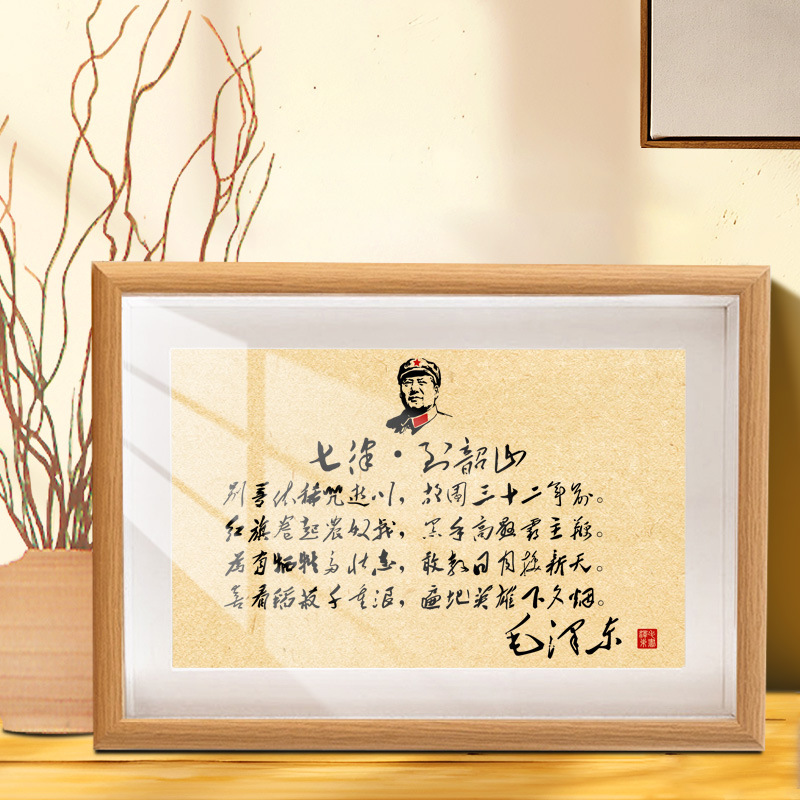 七律·到韶山
别梦依稀咒逝川，故园三十二年前。
红旗卷起农奴戟，黑手高悬霸主鞭。
为有牺牲多壮志，敢教日月换新天。
喜看稻菽千重浪，遍地英雄下夕烟。
毛泽东